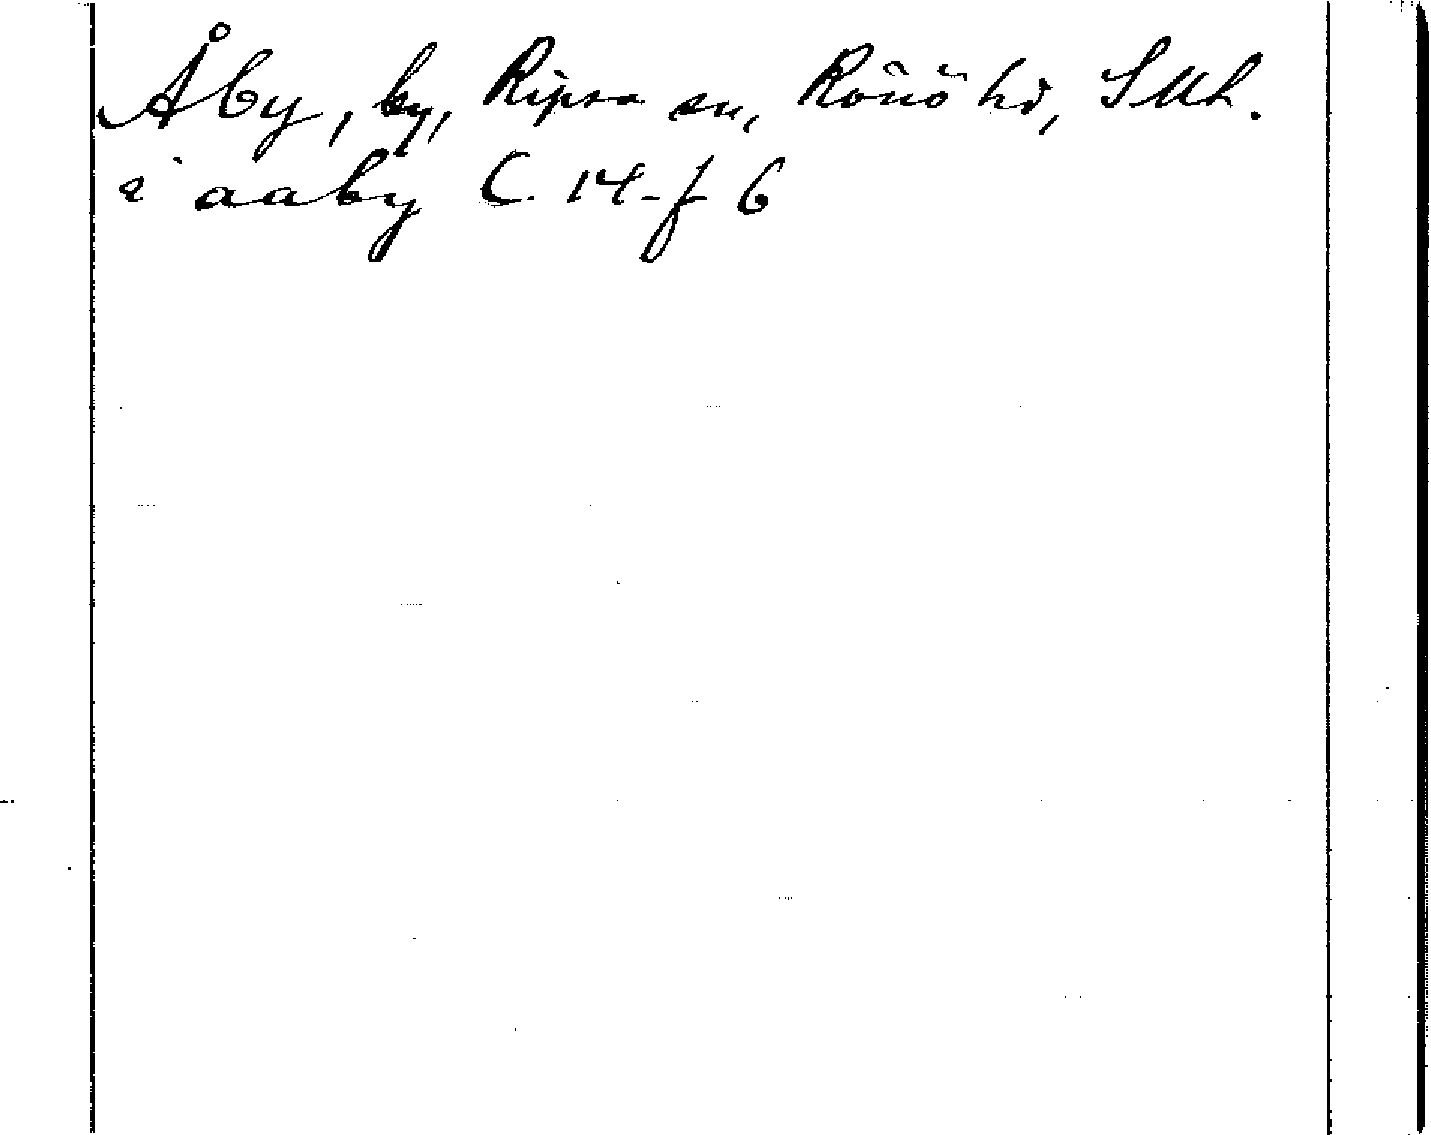 Åby, by, Ripsa sn, Rönö hd, Sdl.
i aaby C. 14 - f 6